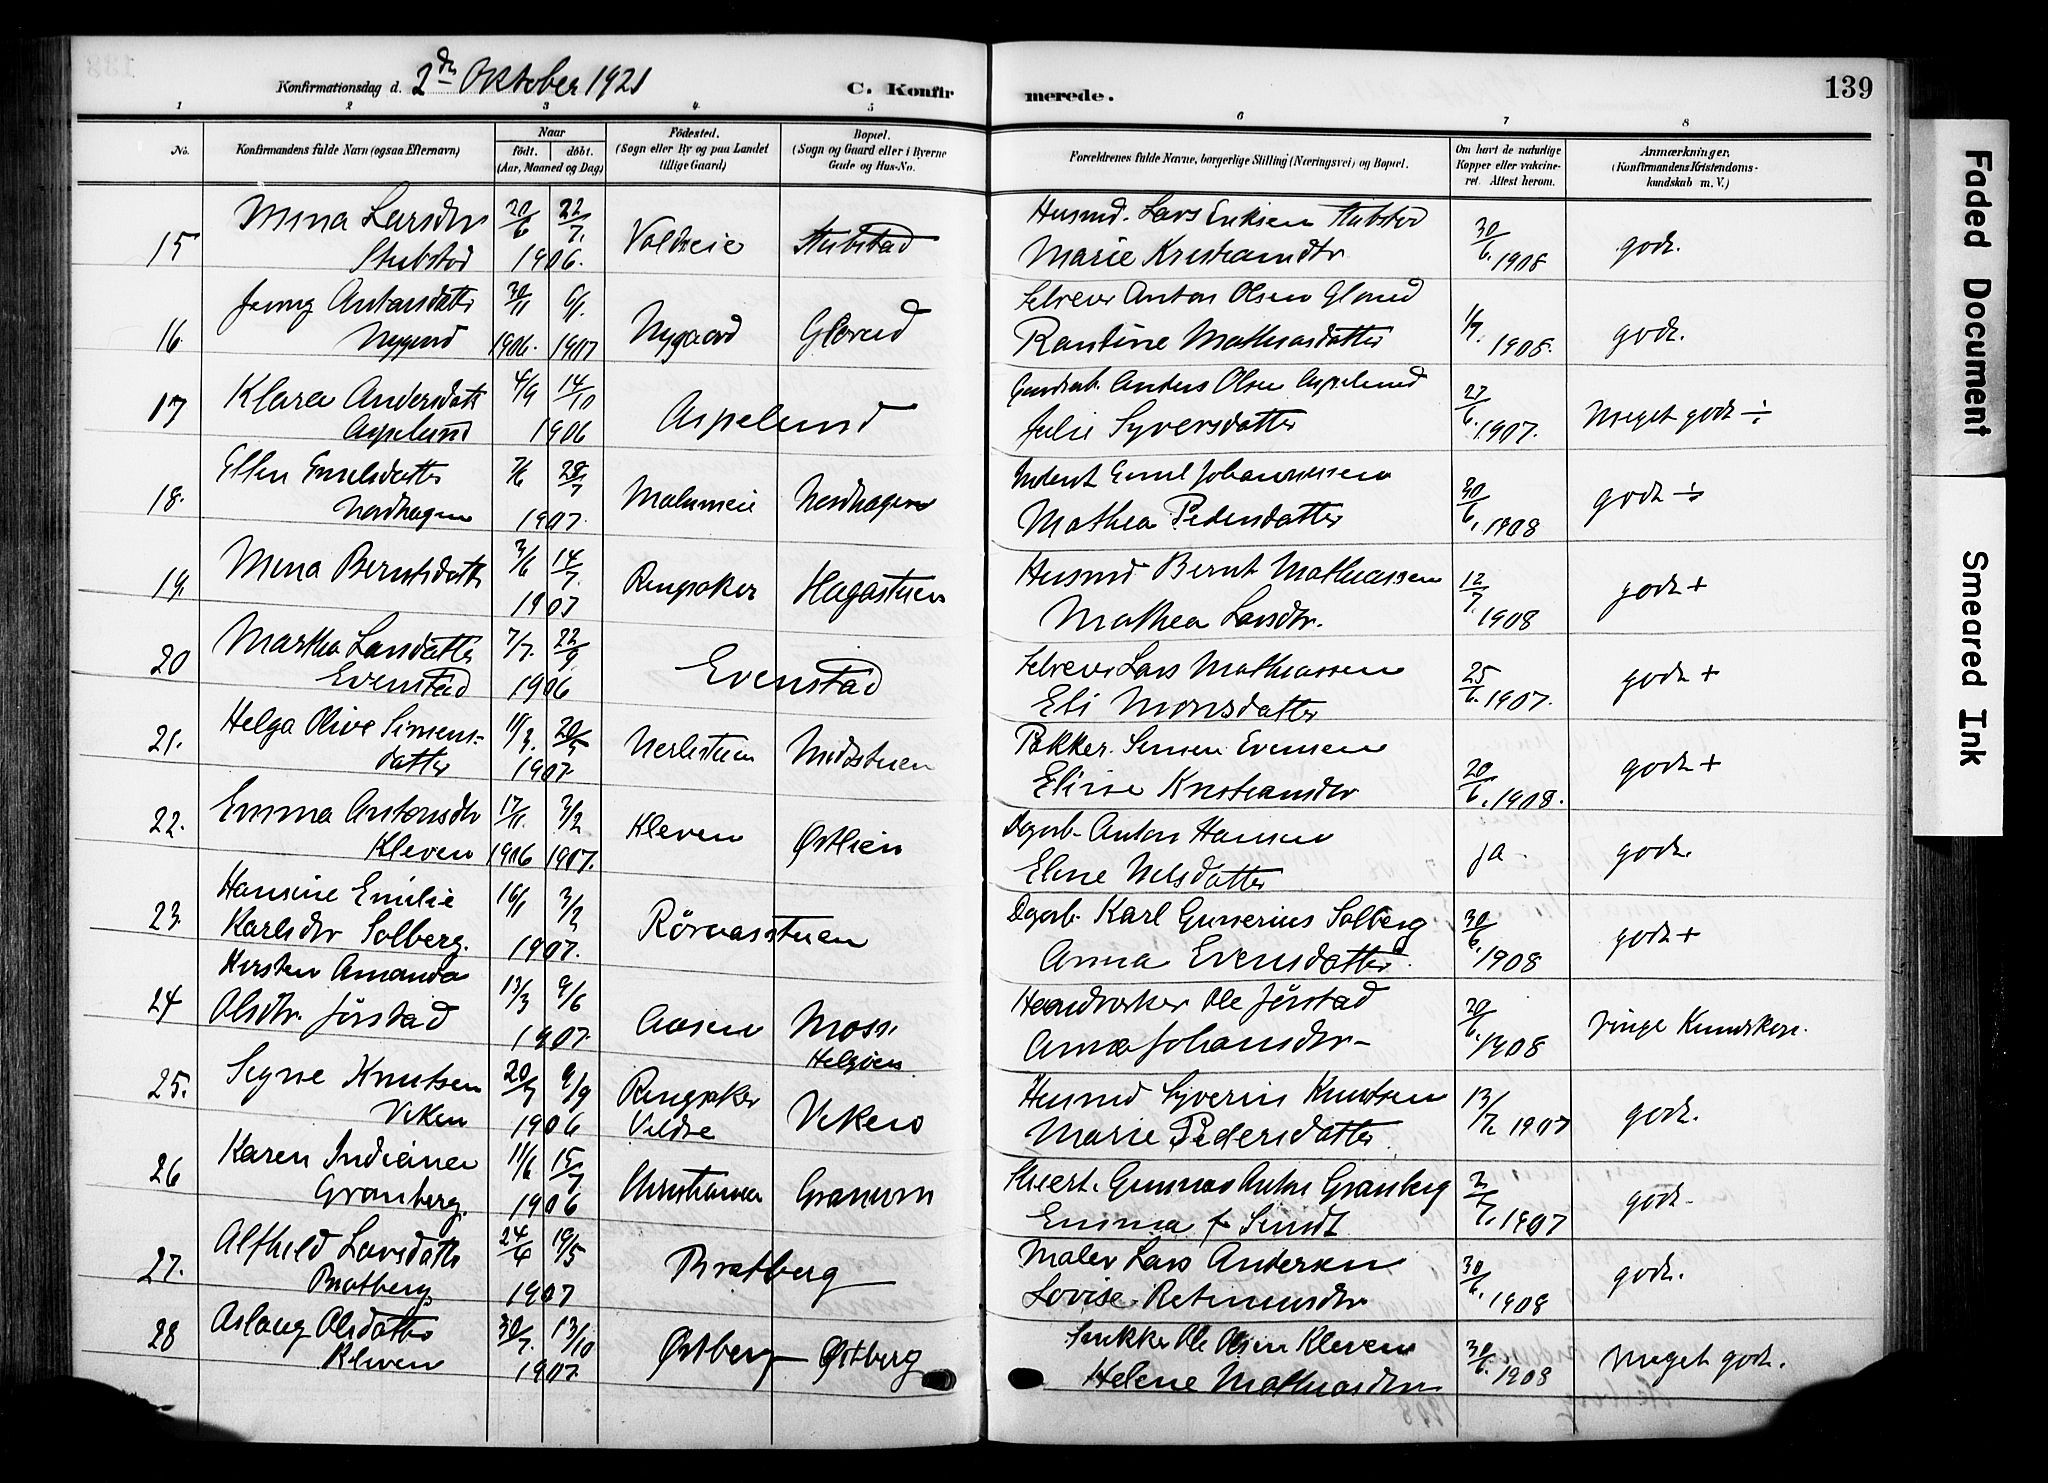 Konfirmationsdag d. 2den Oktober 1921 C. Konfir
merede. 139
1 2 3 4 5 6 7 8
No. Konfirmandens fulde Navn (ogsaa Efternavn) Naar født. døbt. (Aar, Maaned og Dag)
Fødested. (Sogn eller By og paa Landet tillige Gaard)
Bopæl. (Sogn og Gaard eller i Byerne Gade og Hus-No.
Forældrenes fulde Navne, borgerlige Stilling (Næringsvei) og Bopæl.
Om havt de naturlige Kopper eller vakcineret. Attest herom.
Anmærkninger, (Konfirmandens Kristendomskundskab m. V.)
15 Mina Larsdtr 20/6 22/7. Voldseie Stubstad Husmd. Lars Eriksen Stubstad 30/6. 1908 godt.
Stubstad 1906. Marie Kristiansdtr
16. Jenny Antonsdatter 30/11 6/1. Nygaard Glorud Anton Olsen Glorud 1/7. 1908. godt.
1906. 1907 Mathiasdatter
17 Klara Andersdatt 4/9 14/10 Aspelund Gaardarb. Anders Olsen Aspelund 27/6. 1907. Meget godt ÷
Aspelund 1906 Julie Syversdatter
18. Ellen Emilsdatter 7/6 28/7 Nordhagen Emil Johannessen 30/6. 1908 godt ÷
Nordhagen 1907. Mathea Pedersdatter
19. Mina Berntsdatt 3/6 14/7. Ringsaker Hagastuen Husmd Bernt Mathiassen 12/7. 1908 godt +
1907 Mathea Larsdtr.
20 Martha Larsdatter 7/7. 22/9. Evenstad Lars Mathiassen 25/6. 1907. godt +
Evenstad 1906 Eli Monsdatter
21. Helga Olive Simens- 20/5 Nerlistuen Midtstuen Simen Evensen 20/6. 1908. godt +
datter 1907. Elise Kristiansdtr
22. Emma Antonsdtr 17/11. 3/2 Kleven Østlien Dagarb. Anton Hansen ja. godt.
Kleven 1906 1907. Eline Nilsdatter
23. Hansine Emilie 16/1 3/2 Røraasstuen Dagarb. Karl Gunerius Solberg 30/6. 1908 godt +
Karlsdtr Solberg. 1907. Anna Evensdatter.
24 Kirsten Amanda 13/3 9/6 Aasen Moss Haandverker Ole Jørstad 20/6. 1908 ringe Kundskap.
Olsdtr. Jørstad 1907. Helgøen Anna Johansdtr-
25. Signe Knutsen 9/9 Ringsaker Viken Husmd Syverin Knutsen 13/7. 1907 godt.
Viken 1906 Veldre Marie Pedersdatter.
26 Karen Indiane 11/6 15/7 Kristiania Granum Gunnar Anton Granberg 2/7. 1907 godt.
Granberg. 1906 Emma f. Smidt
27. Alfhild Larsdatter 24/4 19/5 Bratberg Maler Lars Andersen 30/6. 1908 godt.
Bratberg 1907 Lovise
28 Aslaug Olsdatter 30/7. 13/10 Østberg Østberg Snekker Ole Olsen Kleven 30/6. 1908 Meget godt.
Kleven 1907. Helene Mathiasdtr
Faded Document
Smeared Ink